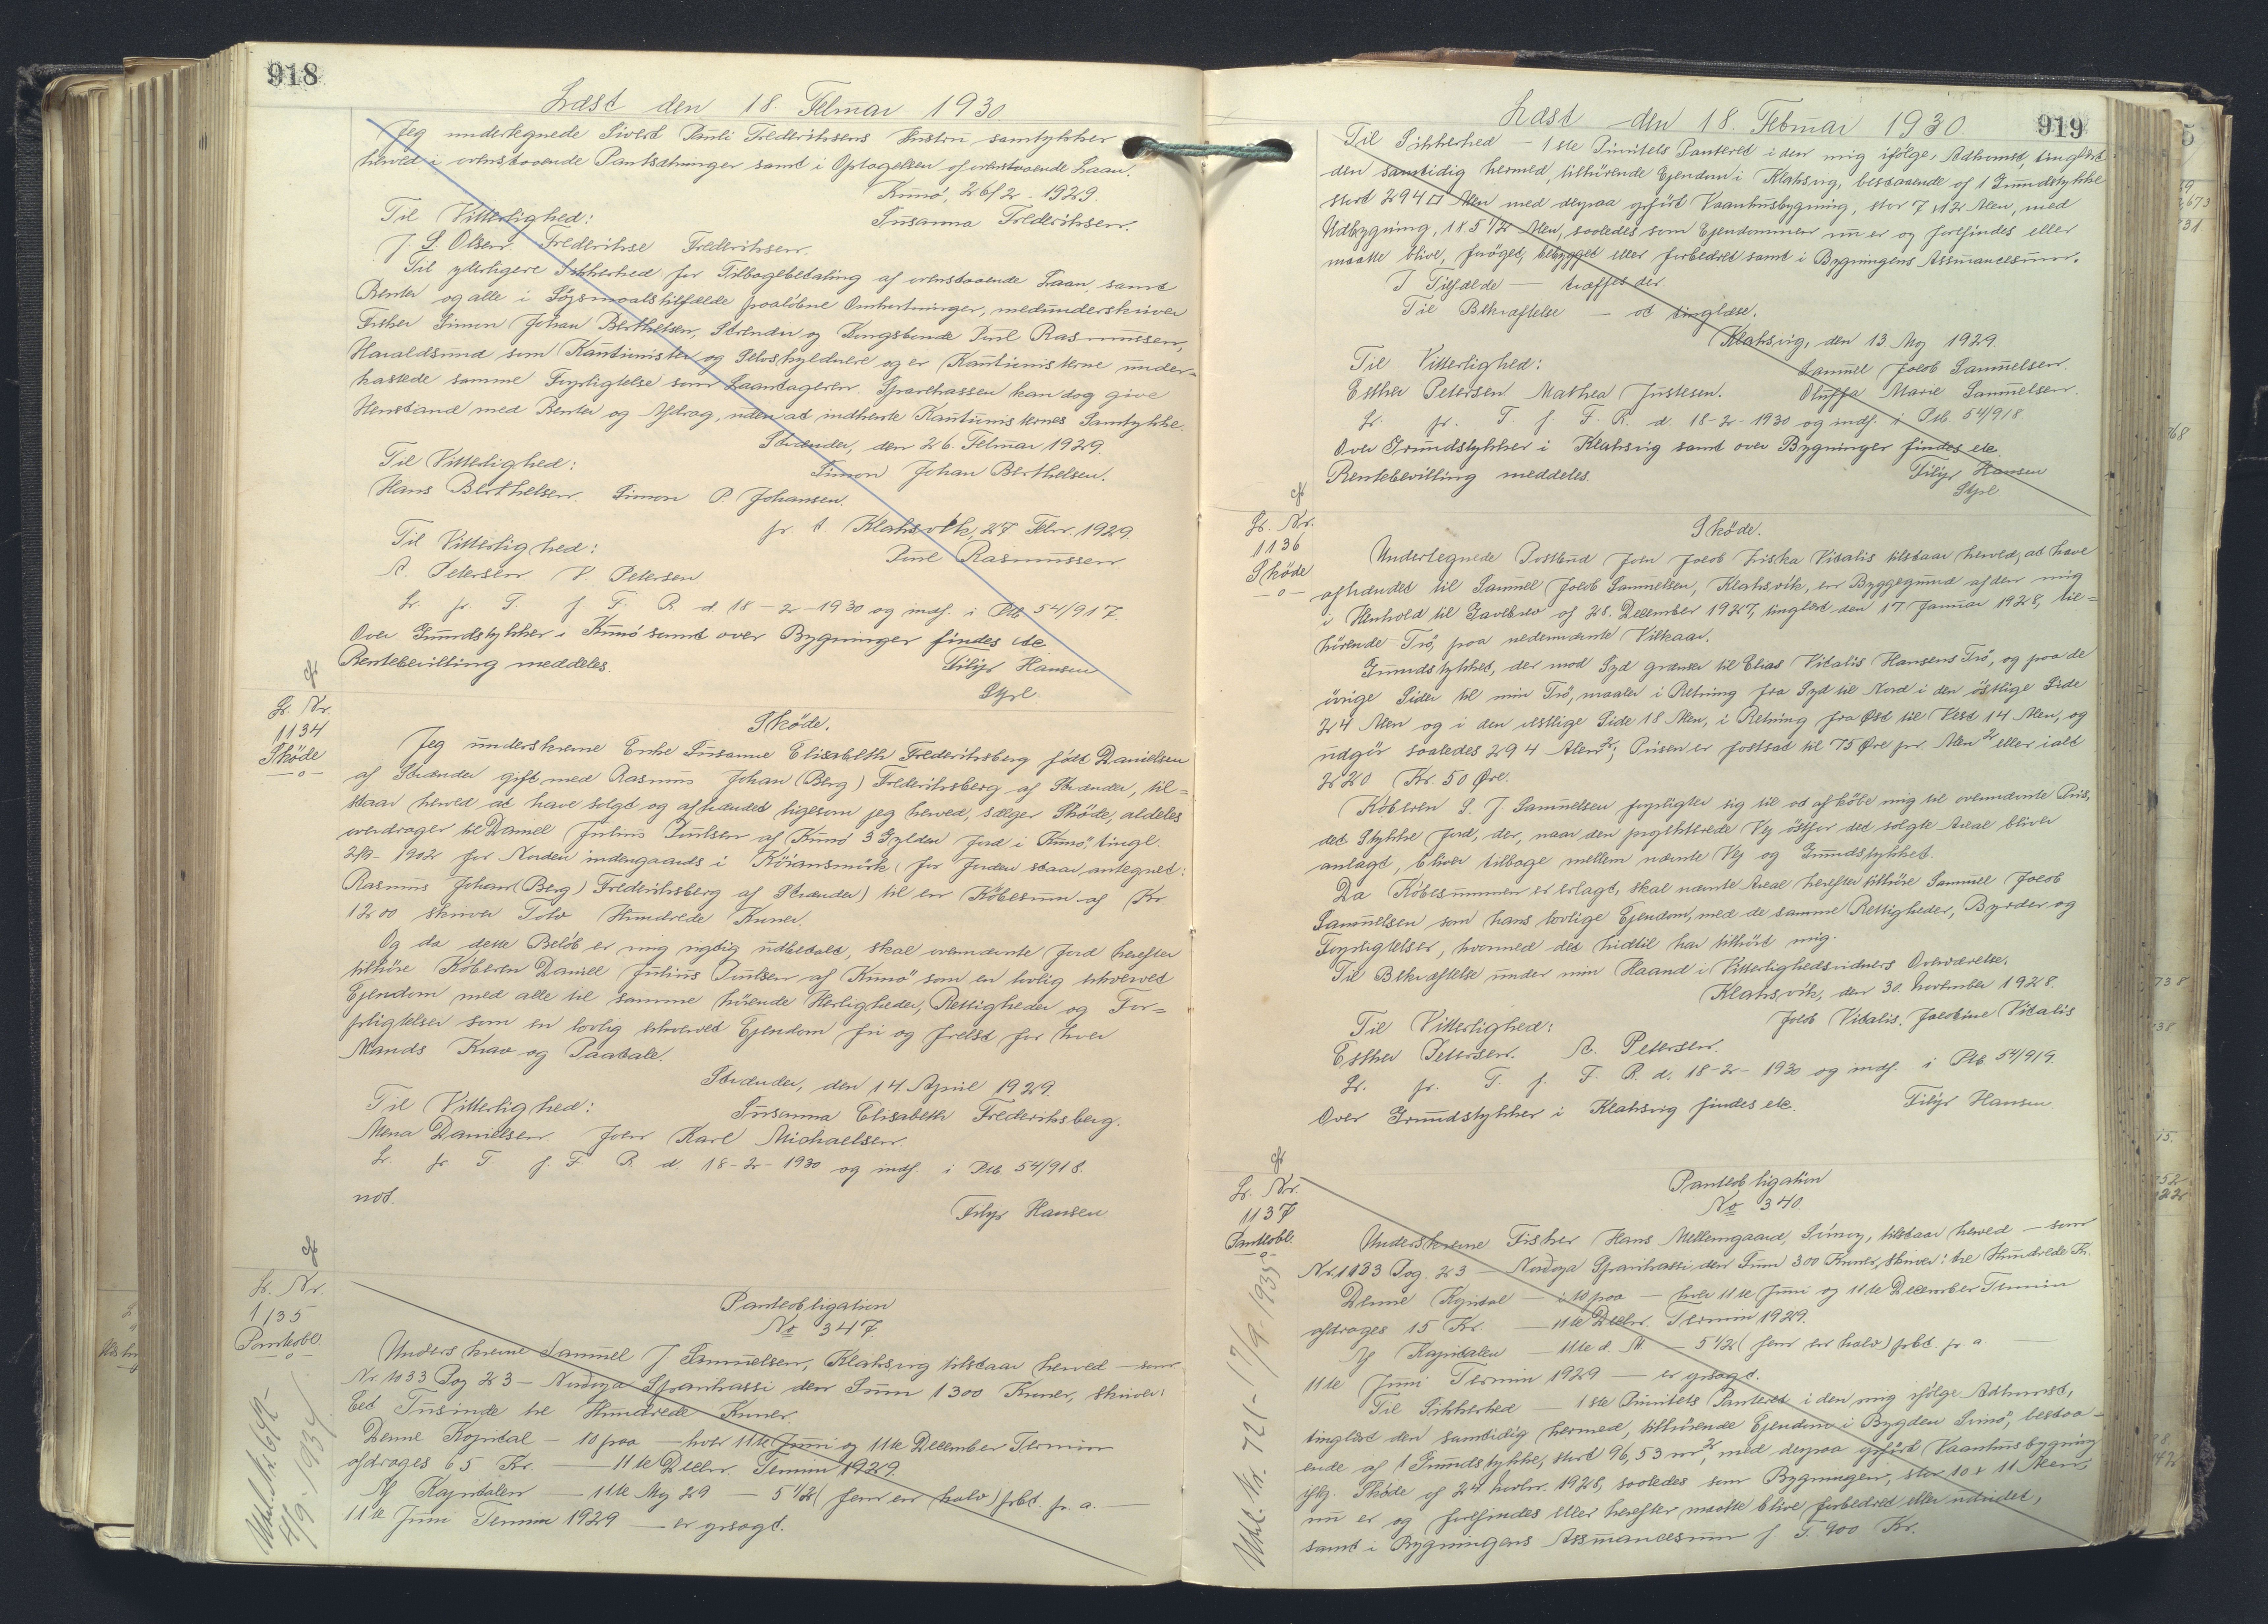 918
Læst den 18. Februar 1930.
Jeg undertegnede Sivert Pauli Frederiksens Hustru samtykker
herved i ovenstaaende Pantsætninger samt i Optagelsen af ovenstaaende Laan.
Kunø, 26/2 - 1929.
Til Vitterlighed: Susanna Frederiksen.
J. S. Olsen. Frederikse Frederiksen.
Til yderligere Sikkerhed for Tilbagebetaling af ovenstaaende Laan, samt
Renter og alle i Søgsmaalstilfælde paaløbne Omkostninger, medunderskriver
Fisker Simon Johan Berthelsen, Strender og Kongsbonde Poul Rasmussen,
Haraldsund som Kautionister og Selvskyldnere og er Kautionisterne under=
kastede samme Forpligtelse som Laantageren. Sparekassen kan dog give
Henstand med Renter og Afdrag, uden at indhente Kautionisternes Samtykke.
Strænder, den 26. Februar 1929.
Til Vitterlighed: Simon Johan Berthelsen.
Hans Berthelsen. Simon P. Johansen.
pr. t Klaksvik, 27. Febr. 1929.
Til Vitterlighed: Poul Rasmussen
A. Petersen V. Petersen
Lr. fr. T. f. F. R. d. 18-2-1930 og indf. i Ptb. 54/917.
Over Grundstykker i Kunø samt over Bygninger findes etc
Rentebevilling meddeles. Filip Hansen
Styl
Lr. Nr.
1134
Skøde
—o—
Skøde.
Jeg underskrevne Enke Susanne Elisabeth Frederiksberg født Danielsen
af Strænder gift med Rasmus Johan (Berg) Frederiksberg af Strænder, til=
staar herved at have solgt og afhændet ligesom jeg herved, sælger Skøde, aldeles
overdrager til Daniel Julius Poulsen af Kunø 3 Gylden Jord i Kunø, tingl.
2/9- 1902 for Norden indengaards i Kóransmörk (for Jorden staar antegnet:
Rasmus Johan (Berg) Frederiksberg af Strænder) til en Købesum af Kr.
1200 skriver Tolv Hundrede Kroner.
Og da dette Beløb er mig rigtig udbetalt, skal ovennævnte Jord herefter
tilhøre Køberen Daniel Julius Poulsen af Kunø som en lovlig erhvervet
Ejendom med alle til samme hørende Herligheder, Rettigheder og For=
pligtelser som en lovlig erhvervet Ejendom fri og frelst for hver
Mands Krav og Paatale.
Strænder, den 14. April 1929.
Til Vitterlighed: Susanna Elisabeth Frederiksberg.
Mena Danielsen. Joen Karl Michaelsen.
Lr. fr. T. f. F. R. d. 18-2-1930 og indf. i Ptb. 54/918.
not. Filip Hansen
Lr. Nr.
1135
Pantobl.
—o—
4/9-1934
Pantobligation
No 347.
Underskrevne Samuel J. Samuelsen, Klaksvig tilstaar herved — som
Nr. 1033 Pag 23 — Nordoya Sparikassi den Sum 1300 Kroner, skriver:
Eet Tusinde tre Hundrede Kroner.
Denne Kapital — 10 paa — hver 11te Juni og 11te December Termin
afdrages 65 Kr. — 11te Decbr. Termin 1929.
Af Kapitalen — 11te Maj 29 — 5 1/2 (fem en halv) prCt. pr. a. —
11te Juni Termin 1929 — er gsagt.
919
Læst den 18. Februar 1930.
Til Sikkerhed — 1ste Prioritets Panteret i den mig ifølge Adkomst, tinglæst
den samtidig hermed, tilhørende Ejendom i Klaksvig, bestaaende af 1 Grundstykke
stort 294 □ Alen med derpaa opført Vaanhusbygning, stor 7 x 12 Alen, med
Udbygning, 1 x 5 1/2 Alen, saaledes som Ejendommen nu er og forefindes eller
maatte blive, forøget, bebygget eller forbedret samt i Bygningens Assurancesum.
I Tilfælde — træffes der.
Til Bekræftelse — at tinglæse.
Klaksvig, den 13 Maj 1929.
Til Vitterlighed: Samuel Jacob Samuelsen.
Esther Petersen Mathea Justesen. Oluffa Marie Samuelsen.
Lr. fr. T. f. F. R. d. 18-2-1930 og indf. i Ptb 54/918
Over Grundstykker i Klaksvig samt over Bygninger findes etc.
Rentebevilling meddeles. Filip Hansen
Styl
Lr. Nr.
1136
Skøde
—o—
Skøde.
Undertegnede Postbud Joen Jacob Ziska Vitalis tilstaar herved, at have
afhændet til Samuel Jacob Samuelsen, Klaksvik, en Byggegrund af den mig
i Henhold til Gavebrev af 28. December 1927, tinglæst den 17. Januar 1928, til=
hørende Trø, paa nedennævnte Vilkaar.
Grundstykket, der mod Syd grænser til Elias Vitalis Hansens Trø, og paa de
øvrige Sider til min Trø, maaler i Retning fra Syd til Nord i den østlige Side
24 Alen og i den vestlige Side 18 Alen, i Retning fra Øst til Vest 14 Alen, og
udgør saaledes 294 Alen²; Prisen er fastsat til 75 Øre pr. Alen² eller ialt
220 Kr. 50 Øre.
Køberen S. J. Samuelsen forpligter sig til at afkøbe mig til ovennævnte Pris,
det Stykke Jord, der, naar den projekterede Vej østfor det solgte Areal bliver
anlagt, bliver tilbage mellem nævnte Vej og Grundstykket.
Da Købesummen er erlagt, skal nævnte Areal herefter tilhøre Samuel Jacob
Samuelsen som hans lovlige Ejendom, med de samme Rettigheder, Byrder og
Forpligtelser, hvormed det hidtil har tilhørt mig.
Til Bekræftelse under min Haand i Vitterlighedsvidners Overværelse.
Klaksvik, den 30. November 1928.
Til Vitterlighed: Jacob Vitalis. Jacobine Vitalis
Esther Petersen. A. Petersen.
Lr. fr. T. f. F. R. d. 18-2-1930 og indf. i Ptb 54/919.
Over Grundstykker i Klaksvig findes etc. Filip Hansen
Lr. Nr.
1137
Pantobl.
—o—
Udsl. Nr. 721 - 17/9-1935
Pantobligation
No 340.
Underskrevne Fisker Hans Mellemgaard, Svinoy, tilstaar herved — som
Nr. 1133 Pag. 23 — Nordoya Sparikassi den Sum 300 Kroner, skriver: tre Hundrede Kr.
Denne Kapital — i 10 paa — hver 11te Juni og 11te December Termin
afdrages 15 Kr. — 11te Decbr. Termin 1929.
Af Kapitalen — 11te d. M. — 5 1/2 (fem en halv) prCt. pr. a
11te Juni Termin 1929 — er gsagt.
Til Sikkerhed — 1ste Prioritets Panteret i den mig ifølge Adkomst,
tinglæst den samtidig hermed, tilhørende Ejendom i Bygden Svinø, bestaa=
ende af 1 Grundstykke, stort 96,53 m², med derpaa opført Vaanhusbygning
iflg. Skøde af 24. Novbr. 1928, saaledes som Bygningen, stor 10 x 11 Alen,
nu er og forefindes eller herefter maatte blive forbedret eller udvidet,
samt i Bygningens Assurancesum f. T. 900 Kr.